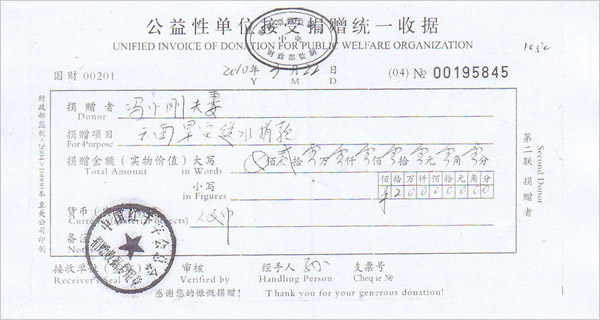 公益性单位接受捐赠统一收据
UNIFIED INVOICE OF DONATION FOR PUBLIC WELFARE ORGANIZATION
国财 00201 2010年 3月 22日 (04) № 00195845
Y M D
捐赠者 冯小刚夫妻
Donor
捐赠项目 云南旱灾送水捐款
For Purpose
捐赠金额(实物价值)大写 佰贰拾零万零仟零佰零拾零元零角零分
Total Amount in Words
小写 佰拾万仟佰拾元角分
in Figures ¥20000000
货币 人民币
备注
接收单位 审核 经手人 支票号
Receiver's Seal Verified by Handling Person Cheque №
感谢您的慷慨捐赠! Thank you for your generous donation!
第二联捐赠者
Second Donor
中国红十字会总会